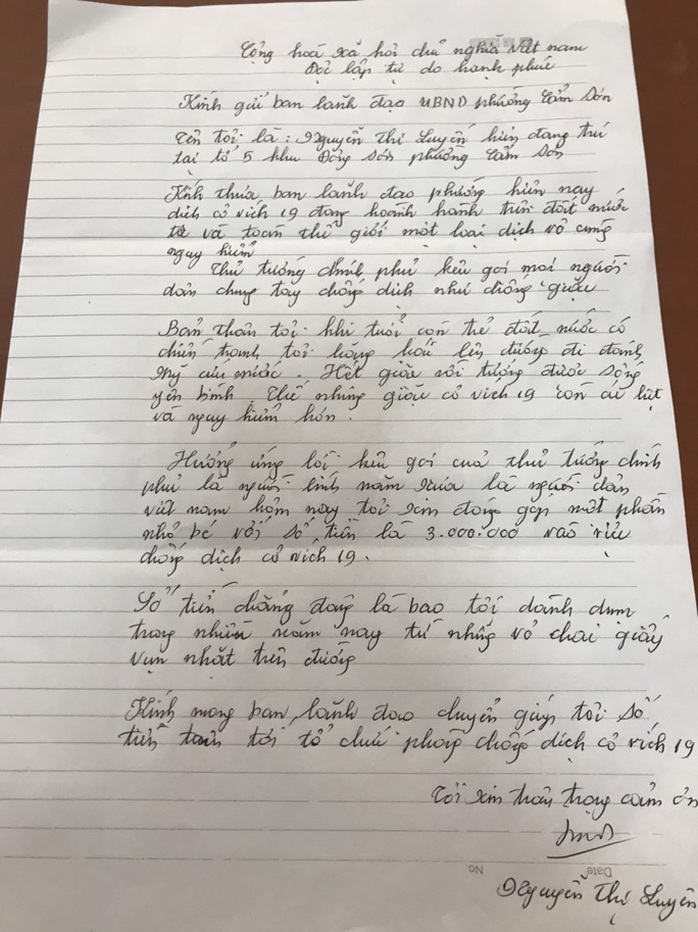 Cộng hoà xã hội chủ nghĩa Việt nam
Độc lập tự do hạnh phúc
Kính gửi ban lãnh đạo UBND phường Cẩm Sơn
Tên tôi là: Nguyễn Thị Luyên hiện đang trú
tại tổ 5 khu Đông Sơn phường Cẩm Sơn
Kính thưa ban lãnh đạo phường hiện nay
dịch cô vích 19 đang hoành hành trên đất nước
ta và toàn thế giới một loại dịch vô cùng
nguy hiểm
Thủ tướng chính phủ kêu gọi mọi người
dân chung tay chống dịch như chống giặc
Bản thân tôi khi tuổi còn trẻ đất nước có
chiến tranh tôi hăng hái lên đường đi đánh
Mỹ cứu nước. Hết giặc rồi tưởng được sống
yên bình. Thế nhưng giặc cô vích 19 còn
và nguy hiểm hơn.
Hưởng ứng lời kêu gọi của thủ tướng chính
phủ là người lính năm xưa là người dân
việt nam hôm nay tôi xin đóng góp một phần
nhỏ bé với số tiền là 3.000.000 vào việc
chống dịch cô vích 19.
Số tiền chẳng đáng là bao tôi dành dụm
trong nhiều năm nay từ những vỏ chai giấy
vụn nhặt trên đường
Kính mong ban lãnh đạo chuyển giúp tôi số
tiền tới tổ chức phòng chống dịch cô vích 19
Tôi xin trân trọng cảm ơn
Date
No.
Nguyễn Thị Luyên